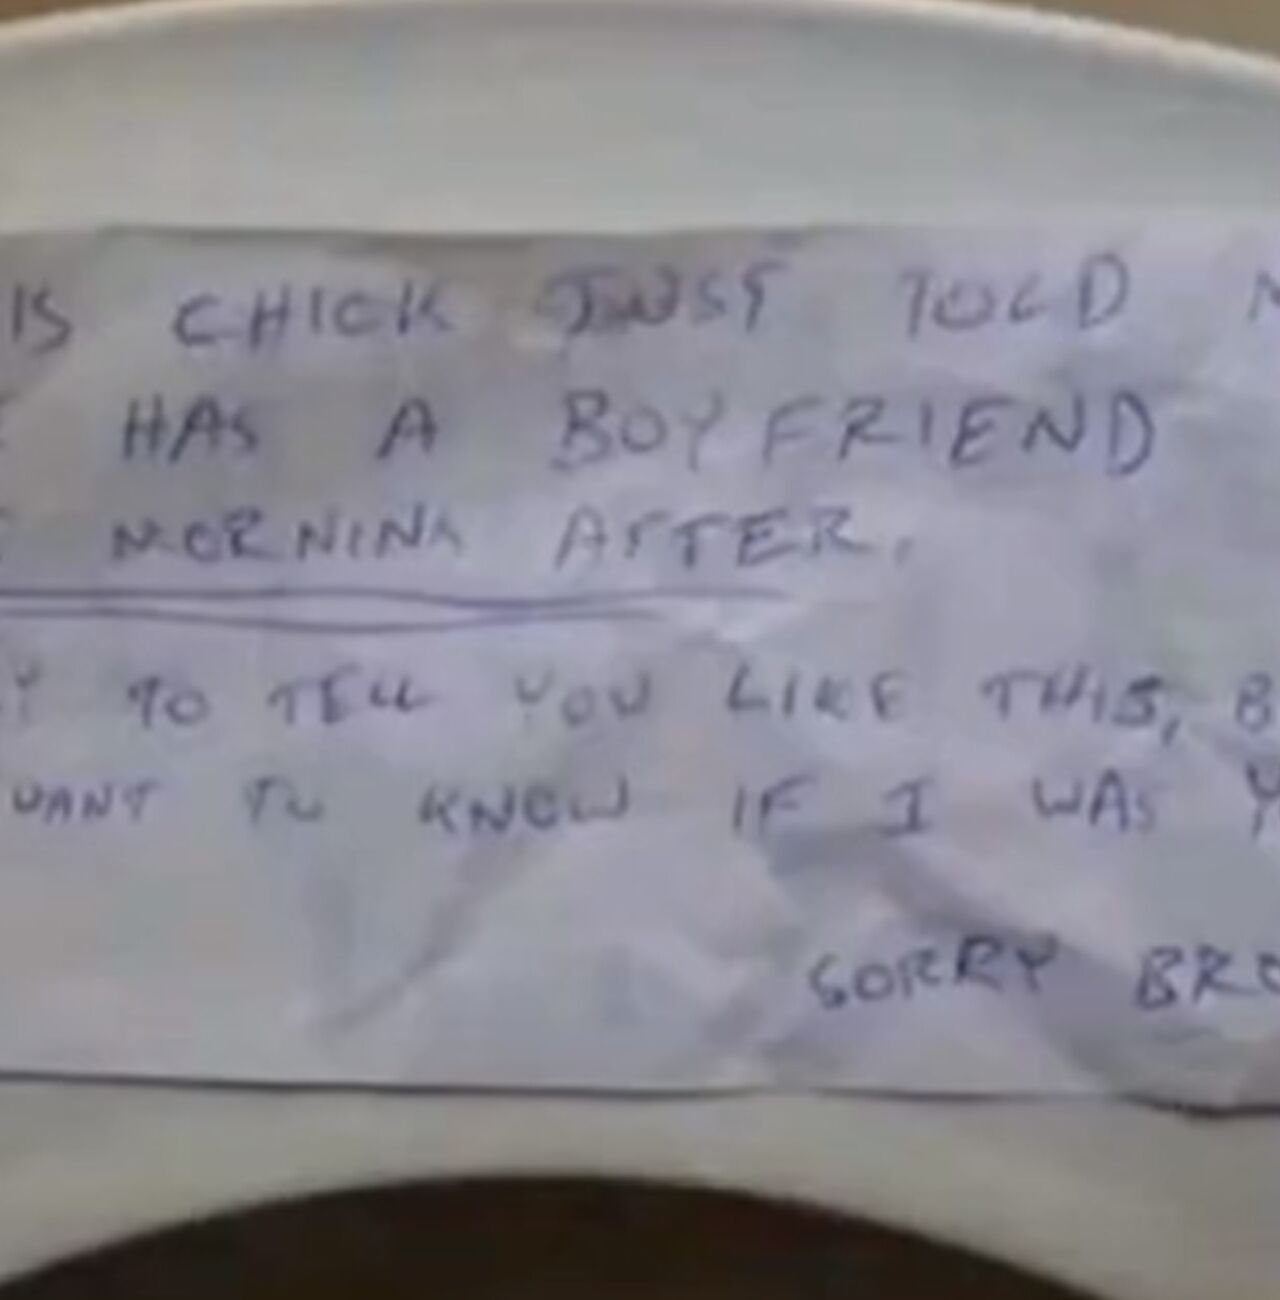 IS CHICK JUST TOLD
HAS A BOYFRIEND
MORNING AFTER.
TO TELL YOU LIKE THIS, B
WANT TO KNOW IF I WAS Y
SORRY BRO